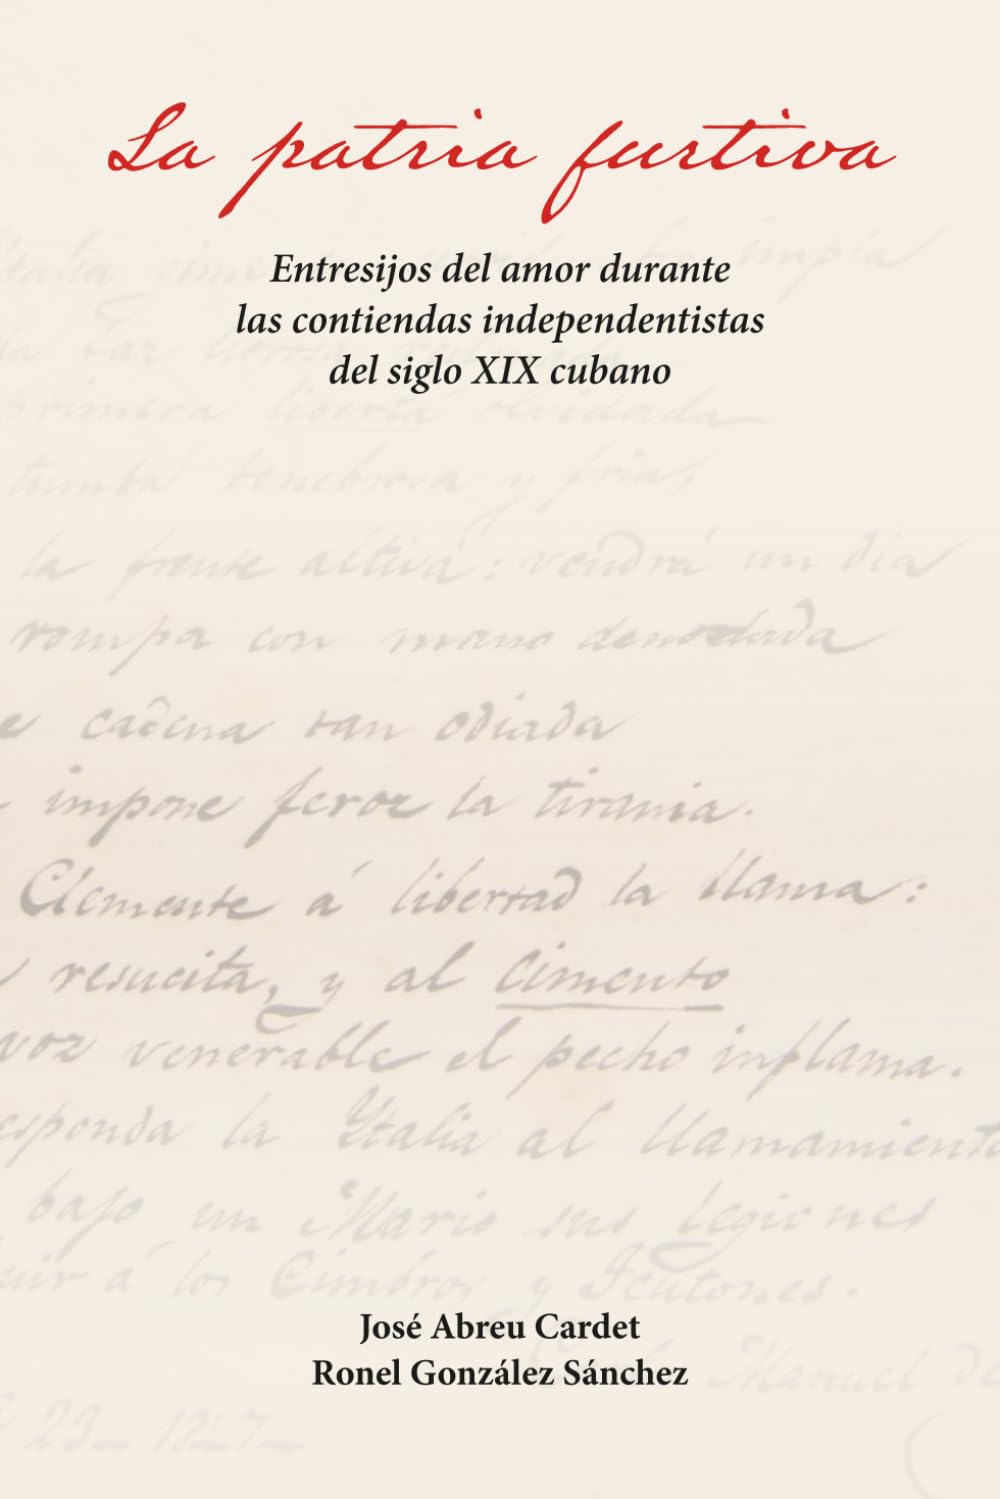 La patria furtiva
Entresijos del amor durante
las contiendas independentistas
del siglo XIX cubano
Italia
primera libertá olvidada
tumba tenebrosa y fria,
la frente altiva: vendrá un dia
rompa con mano denodada
cadena tan odiada
impone feroz la tirania.
Clemente á libertad la llama:
resucita, y al Cimento
voz venerable el pecho inflama.
esponda la Ytalia al llamamiento
bajo un Mario sus legiones
uir á los Cimbros y Teutones.
José Abreu Cardet
Ronel González Sánchez
Manuel de
23_ 1847_